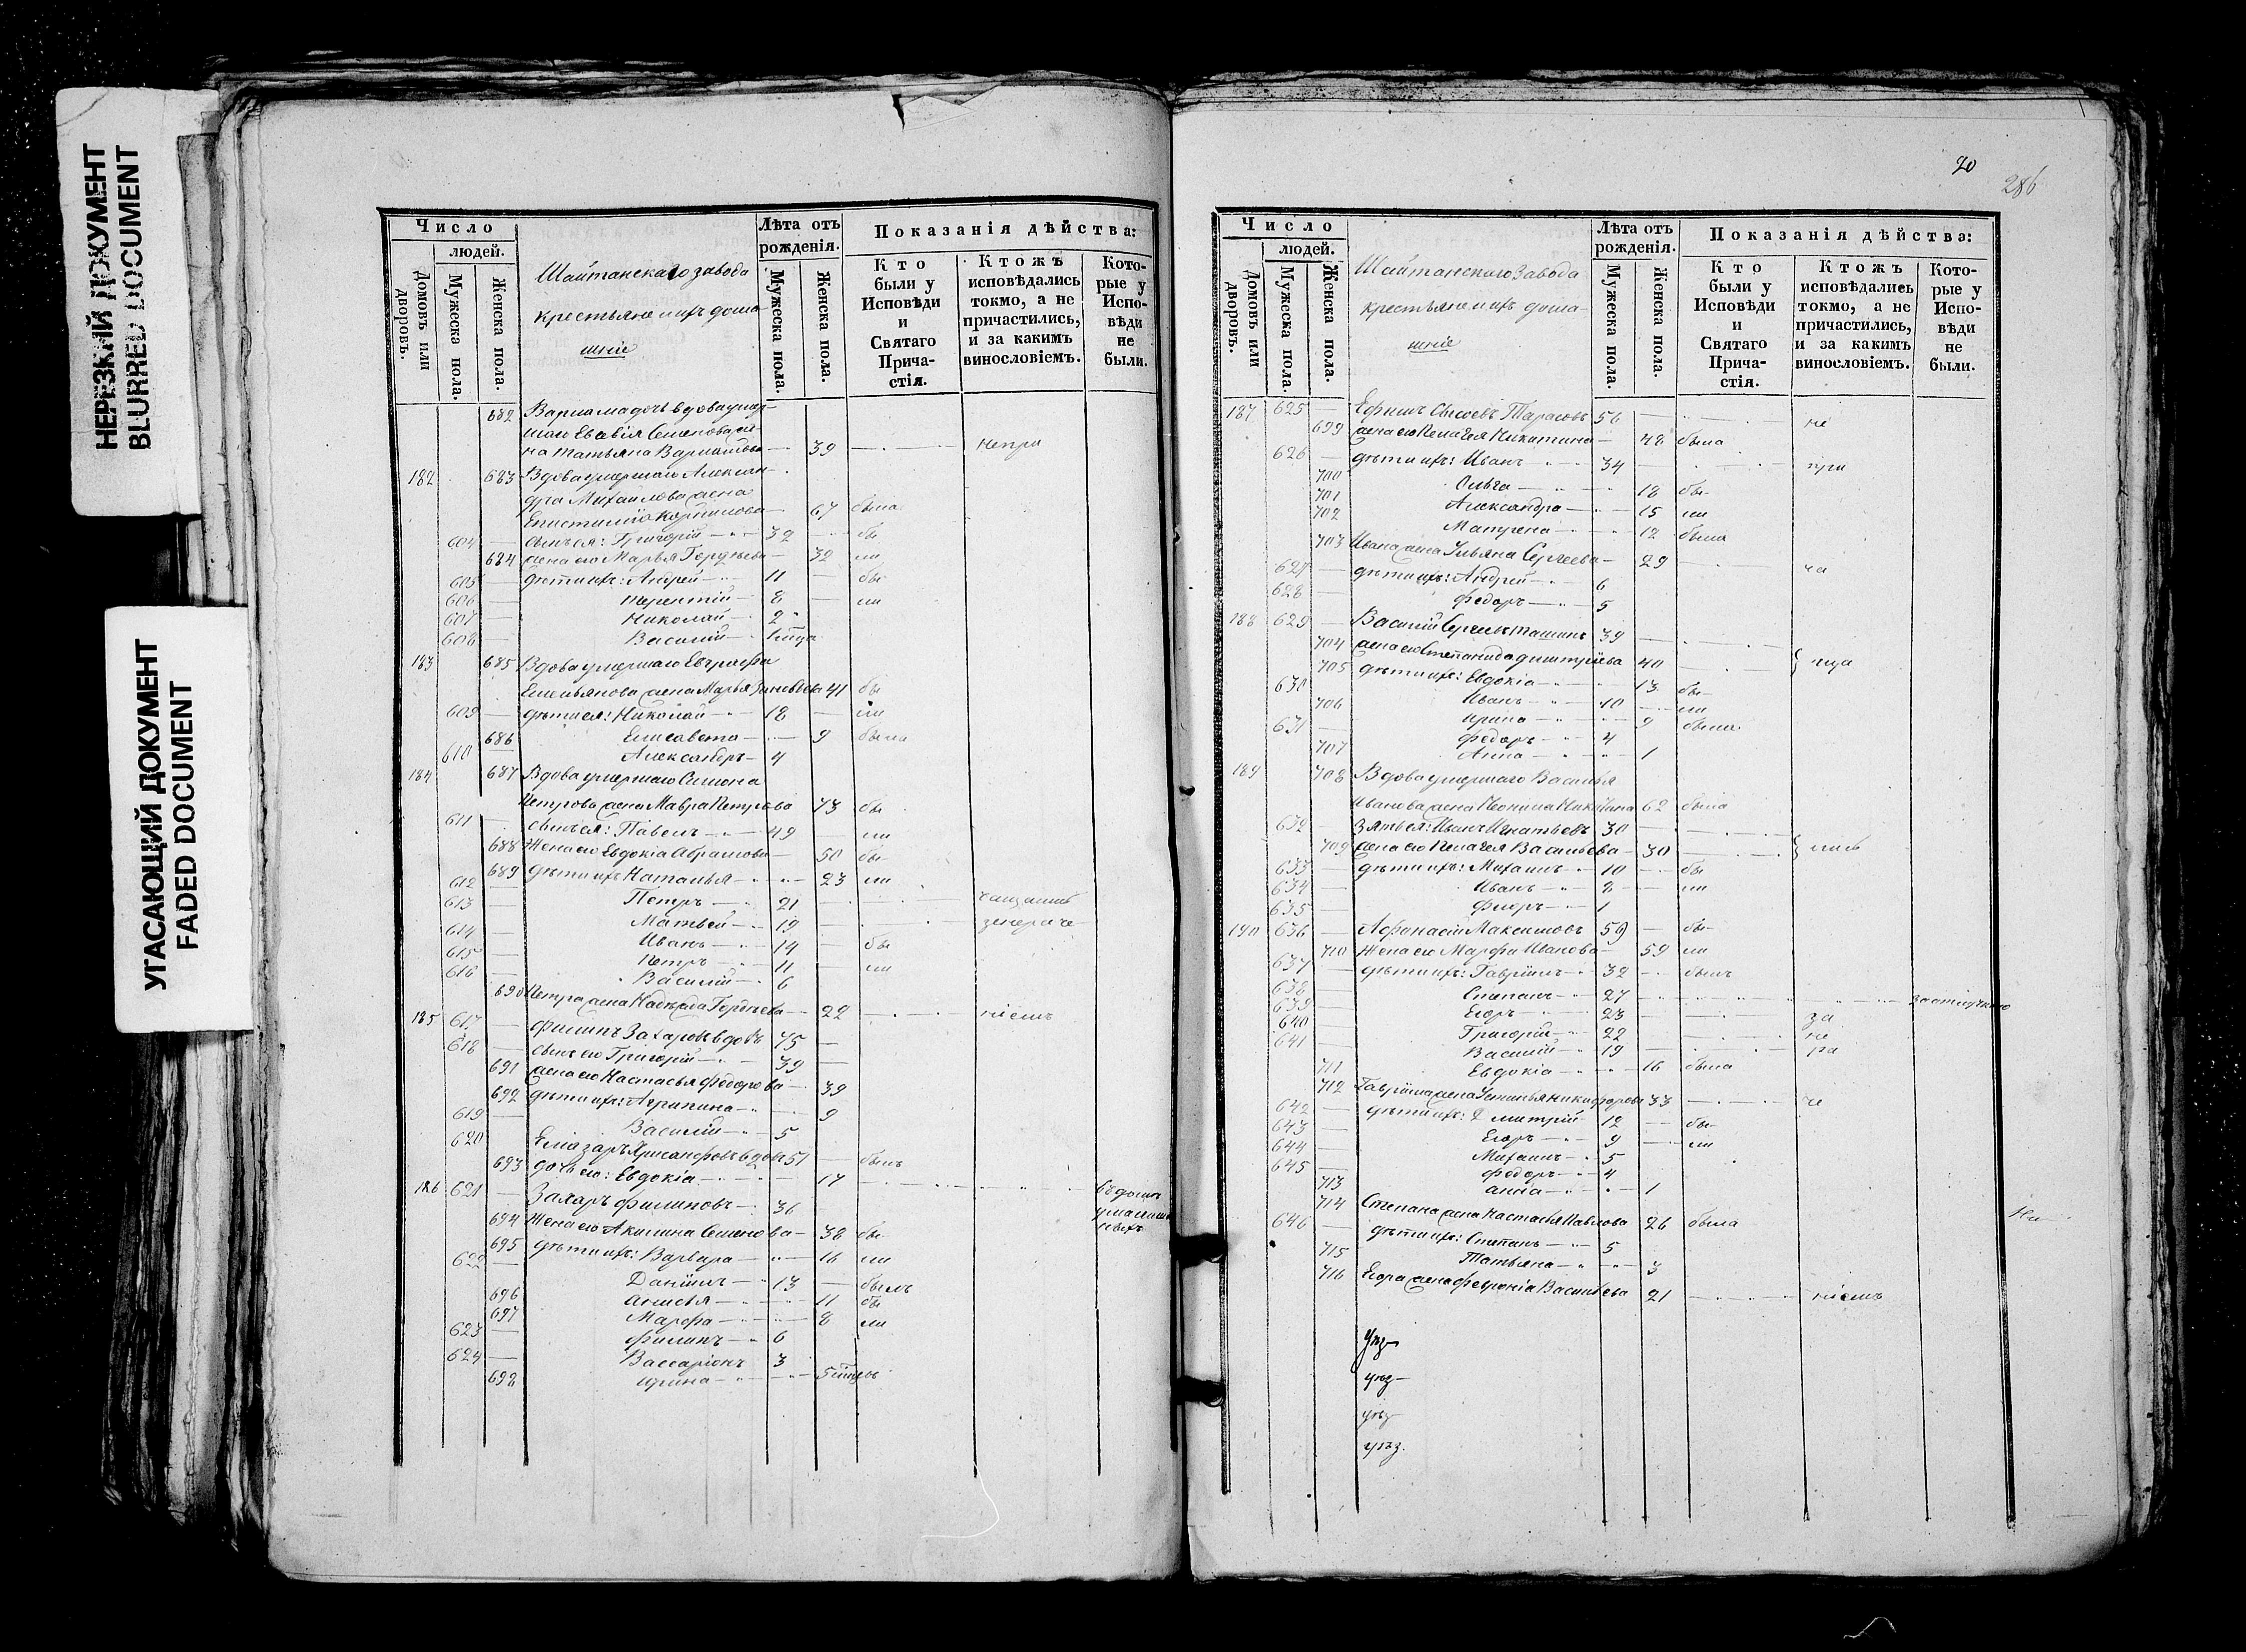 НЕРЕЗКИЙ ДОКУМЕНТ
BLURRED DOCUMENT
УГАСАЮЩИЙ ДОКУМЕНТ
FADED DOCUMENT
Число
людей.
Домовъ или дворовъ.
Мужеска пола.
Женска пола.
Шайтанскаго завода
крестьяне и ихъ дома-
шніе
Лѣта отъ рожденія.
Мужеска пола.
Женска пола.
Показанія дѣйства:
Кто были у Исповѣди и Святаго Прича-стія.
Ктожъ исповѣдались токмо, а не причастились, и за какимъ винословіемъ.
Кото-рые у Испо-вѣди не были.
682
на Татьяна 39 непри
182 683 Вдова умершаго Алексан-
дра Михайлова жена
Корнилова 67 была
604 сынъ ея: Григорій 32 бы
684 жена его Марья Гордѣева 32 ли
605 дѣти ихъ: Андрей 11 бы
606 Терентій 8 ли
607 Николай 2
608 Василій
183 685 Вдова умершаго Евграфа
Емельянова жена Марья Зиновьева 41 бы
609 дѣти ея: Николай 18 ли
686 Елисавета 9 была
610 Александръ 4
184 687 Вдова умершаго Симона
Петрова жена Мавра Петрова 73 бы
611 сынъ ея: Павелъ 49 ли
688 Жена его Евдокія Абрамова 50 бы
689 дѣти ихъ Наталья 23 ли
612 Петръ 21
613 Матвей 19
614 Иванъ 14 бы
615 Петръ 11 ли
616 Василій 6
690 Петра жена Надежда Гордѣева 22 ніемъ
185 617 Филипъ Захаровъ вдовъ 75
618 сынъ его Григорій 39
691 жена его Настасья Федорова 39
692 дѣти ихъ: Агрипина 9
619 Василій 5
620 Елиазаръ Хрисанфовъ вдовъ 51 былъ
693 дочь его: Евдокія 17
186 621 Захаръ Филиповъ 36
694 Жена его Акилина Семенова 38 бы
695 дѣти ихъ: Варвара 16 ли
622 Даніилъ 13 былъ
696 Анисья 11 бы
697 Марфа 8 ли
623 Филипъ 6
624 Вассаріонъ 3
698 Ирина
20
286
Число
людей.
Домовъ или дворовъ.
Мужеска пола.
Женска пола.
Шайтанскаго завода
крестьяне и ихъ дома-
шніе
Лѣта отъ рожденія.
Мужеска пола.
Женска пола.
Показанія дѣйства:
Кто были у Исповѣди и Святаго Прича-стія.
Ктожъ исповѣдались токмо, а не причастились, и за какимъ винословіемъ.
Кото-рые у Испо-вѣди не были.
187 625 Ефимъ Сысоевъ Тарасовъ 56 не
699 жена его Пелагея Никитина 48 была
626 дѣти ихъ: Иванъ 34 при
700 Ольга 18 бы
701 Александра 15 ли
702 Матрена 12 была
703 Ивана жена Ульяна Сергеева 29 ча
627 дѣти ихъ: Андрей 6
628 Федоръ 5
188 629 Василій Сергеевъ 39
704 жена его Степанида Димитріева 40
705 дѣти ихъ: Евдокія 13 бы
630 Иванъ 10 ли
706 Ирина 9 была
631 Федоръ 4
707 Анна 1
189 708 Вдова умершаго Василья
Иванова жена 62 была
632 зять ея: Иванъ Игнатьевъ 30
709 жена его Пелагея Васильева 30 лись
633 дѣти ихъ: Михаилъ 10 бы
634 Иванъ 8 ли
635 Флоръ 1
190 636 Афонасій Максимовъ 59 бы
710 Жена его Марфа Иванова 59 ли
637 дѣти ихъ: Гавріилъ 32 былъ
638 Степанъ 27
639 Егоръ 23 за
640 Григорій 22 не
641 Василій 19 ра
711 Евдокія 16 была
712 Гавріила жена Устинья Никифорова 33 че
642 дѣти ихъ: Дмитрій 12 бы
643 Егоръ 9 ли
644 Михаилъ 5
645 Федоръ 4
713 Анна 1
714 Степана жена Настасья Павлова 26 была
646 дѣти ихъ: Степанъ 5
715 Татьяна 3
716 Егора жена Февронія Васильева 21 ніемъ